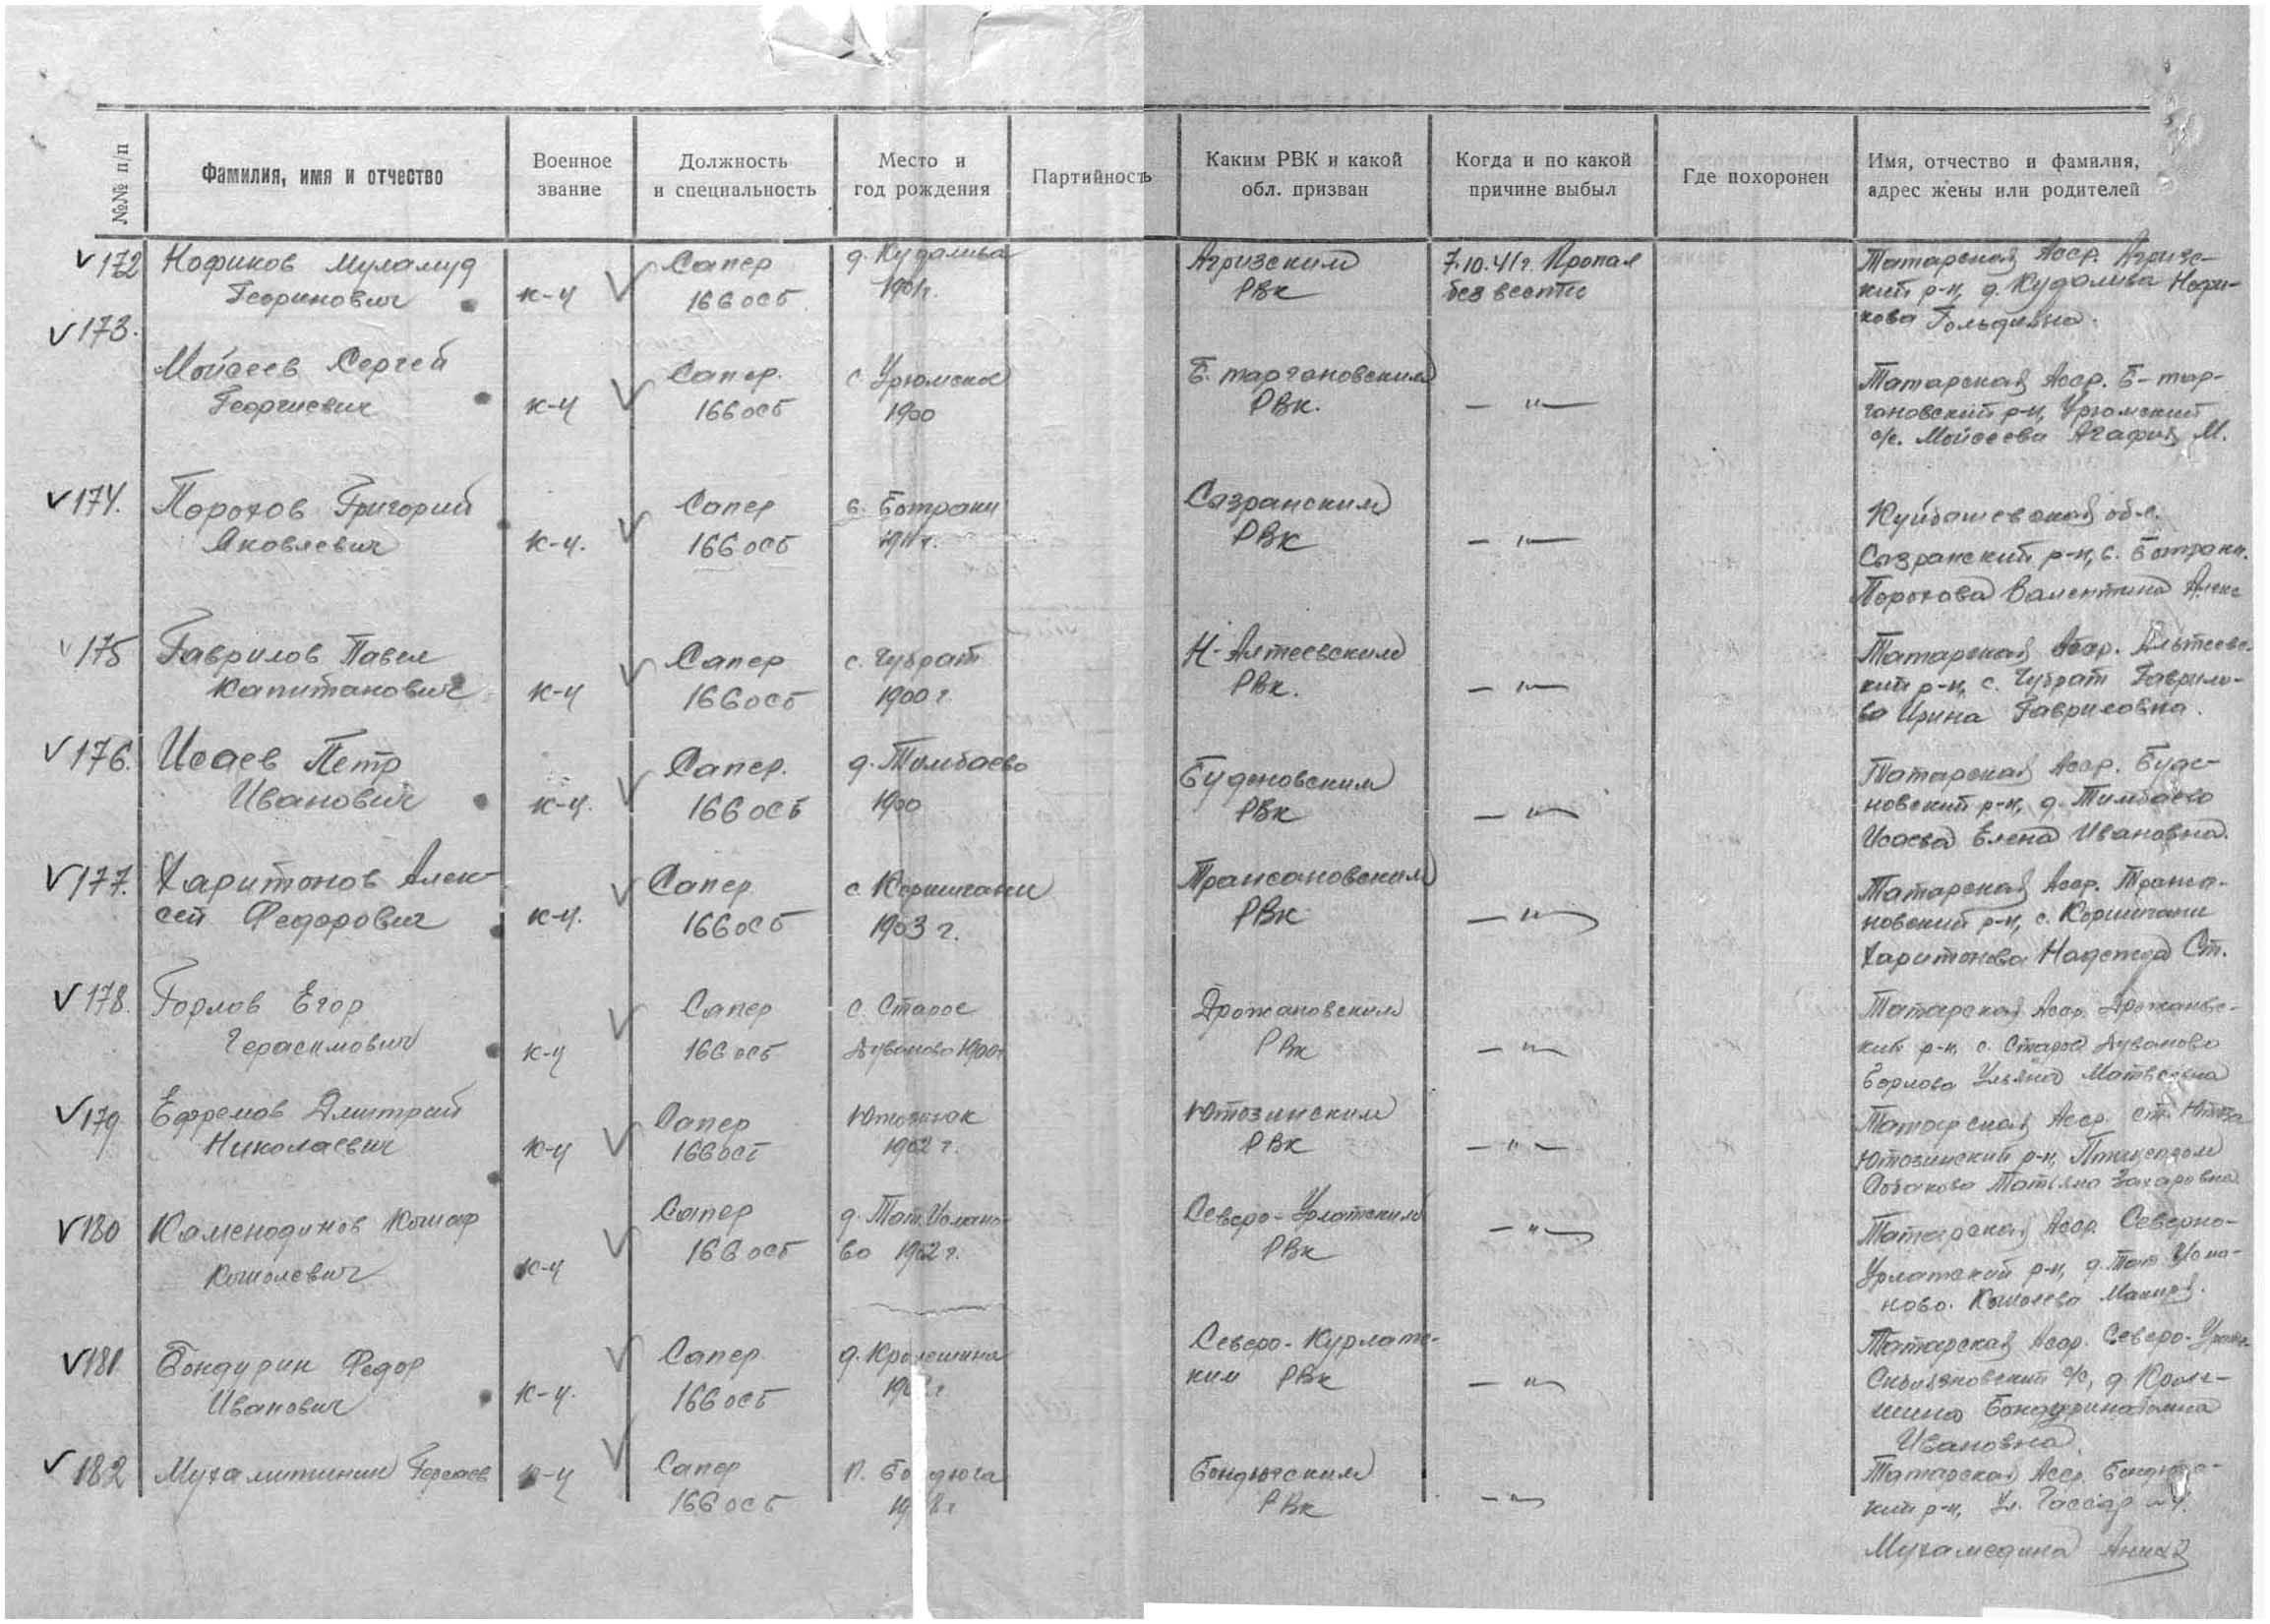 №№ п/п
Фамилия, имя и отчество
Военное
звание
Должность
и специальность
Место и
год рождения
Партийность
Каким РВК и какой
обл. призван
Когда и по какой
причине выбыл
Где похоронен
Имя, отчество и фамилия,
адрес жены или родителей
172 Нофиков Муламуд
к-ц
Сапер
166 осб
1901г.
Агризским
РВК
7.10.41г. Пропал
без вести
Татарская Асср. Агризс-
кий р-н, д.
173.
Мойсеев Сергей
Георгиевич
к-ц
Сапер.
166 осб
с Урюмское
1900
Б. таргановским
РВК.
— " —
Татарская Асср. Б-тар-
гановский р-н, Урюмский
с/с. Мойсеева Агафия М.
174. Порохов Григорий
Яковлевич
к-ц.
Сапер
166 осб
с. Батраки
1911г.
Сызранским
РВК
— " —
Куйбышевская обл.
Сызранский р-н, с. Батраки.
Порохова Валентина Алекс
175 Гаврилов Павел
Капитанович
к-ц
Сапер
166 осб
с. Чубрат
1900 г.
Н-Алтеевским
РВК.
— " —
Татарская Асср. Альтеевс-
кий р-н, с. Чубрат Гаврило-
ва Ирина Гавриловна.
176. Исаев Петр
Иванович
к-ц.
Сапер.
166 осб
д. Тимбаево
1900
Буденовским
РВК
— " —
Татарская Асср. Буде-
новский р-н, д. Тимбаево
Исаева Елена Ивановна.
177. Харитонов Алек-
сей Федорович
к-ц.
Сапер.
166 осб
1903 г.
Трансановским
РВК
— " —
Татарская Асср. Транса-
новский р-н, с.
Харитонова Надежда Ст.
178. Горлов Егор
Герасимович
к-ц
Сапер
166 осб
с. Старое
Дуваново 1900г
Дрожановским
РВК
— " —
Татарская Асср. Дрожановс-
кий р-н, с. Старое Дуваново
Горлова Ульяна Матвеевна
179 Ефремов Дмитрий
Николаевич
к-ц
Сапер
166 осб
1902 г.
Ютозинским
РВК
— " —
Татарская Асср. ст. Ютоза
Ютозинский р-н,
Татьяна Захаровна
180 Каменодинов Комар
Комолевич
к-ц
Сапер
166 осб
д. Тат. Үслано-
во 1902 г.
Северо-Урлатским
РВК
— " —
Татарская Асср. Северно-
Урлатский р-н, д. Тат
ново.
181 Бондурин Федор
Иванович
к-ц.
Сапер
166 осб
д. Кролешина
Северо-Курлатс-
ким РВК
— " —
Татарская Асср. Северо-
с/с, д. Кроле-
шина Бондурина
Ивановна.
182
к-ц
Сапер
166 осб
п. Бондюга
Бондюгским
РВК
— " —
Татарская Асср. Бондюгс-
кий р-н, ул.
Мухамедина